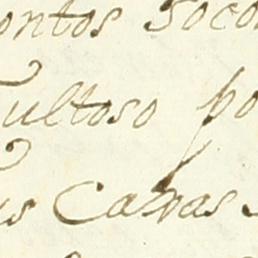 ontos Soco
ultoso po
us Caxas